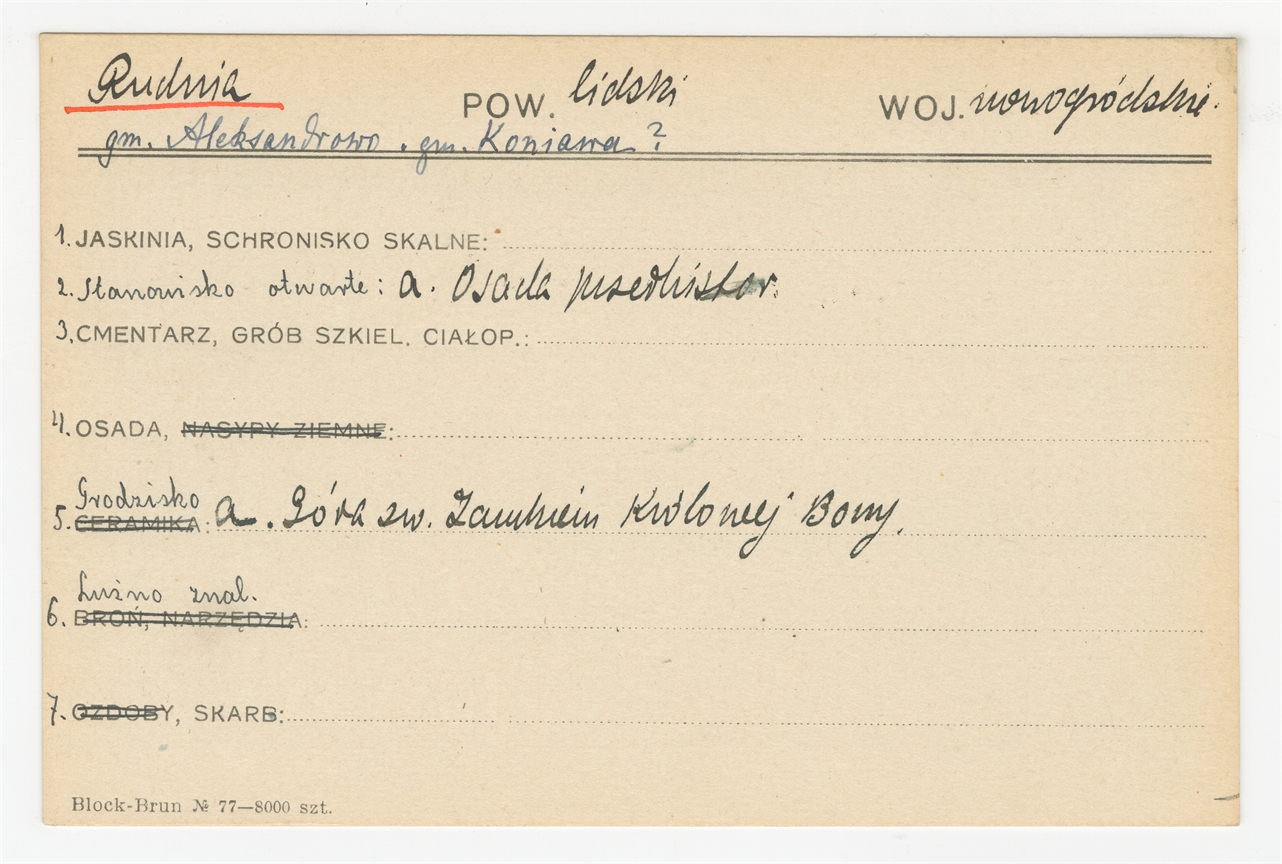 Rudnia POW. lidski WOJ. nowogródzkie.
gm. Aleksandrowo. gm. Koniawa?
1. JASKINIA, SCHRONISKO SKALNE:
2. Stanowisko otwarte: a. Osada przedhistor.
3. CMENTARZ, GRÓB SZKIEL. CIAŁOP.:
4. OSADA, NASYPY ZIEMNE:
Grodzisko
5. CERAMIKA: a. Góra zw. Zamkiem Królowej Bony.
Luźno znal.
6. BROŃ, NARZĘDZIA:
7. OZDOBY, SKARB:
Block-Brun № 77—8000 szt.